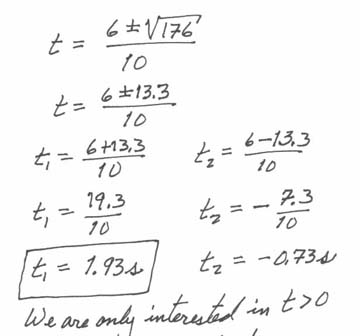 t = (6 ± √176) / 10
t = (6 ± 13.3) / 10
t₁ = (6+13.3) / 10    t₂ = (6−13.3) / 10
t₁ = 19.3 / 10    t₂ = − 7.3 / 10
t₁ = 1.93 s    t₂ = −0.73 s
We are only interested in t>0